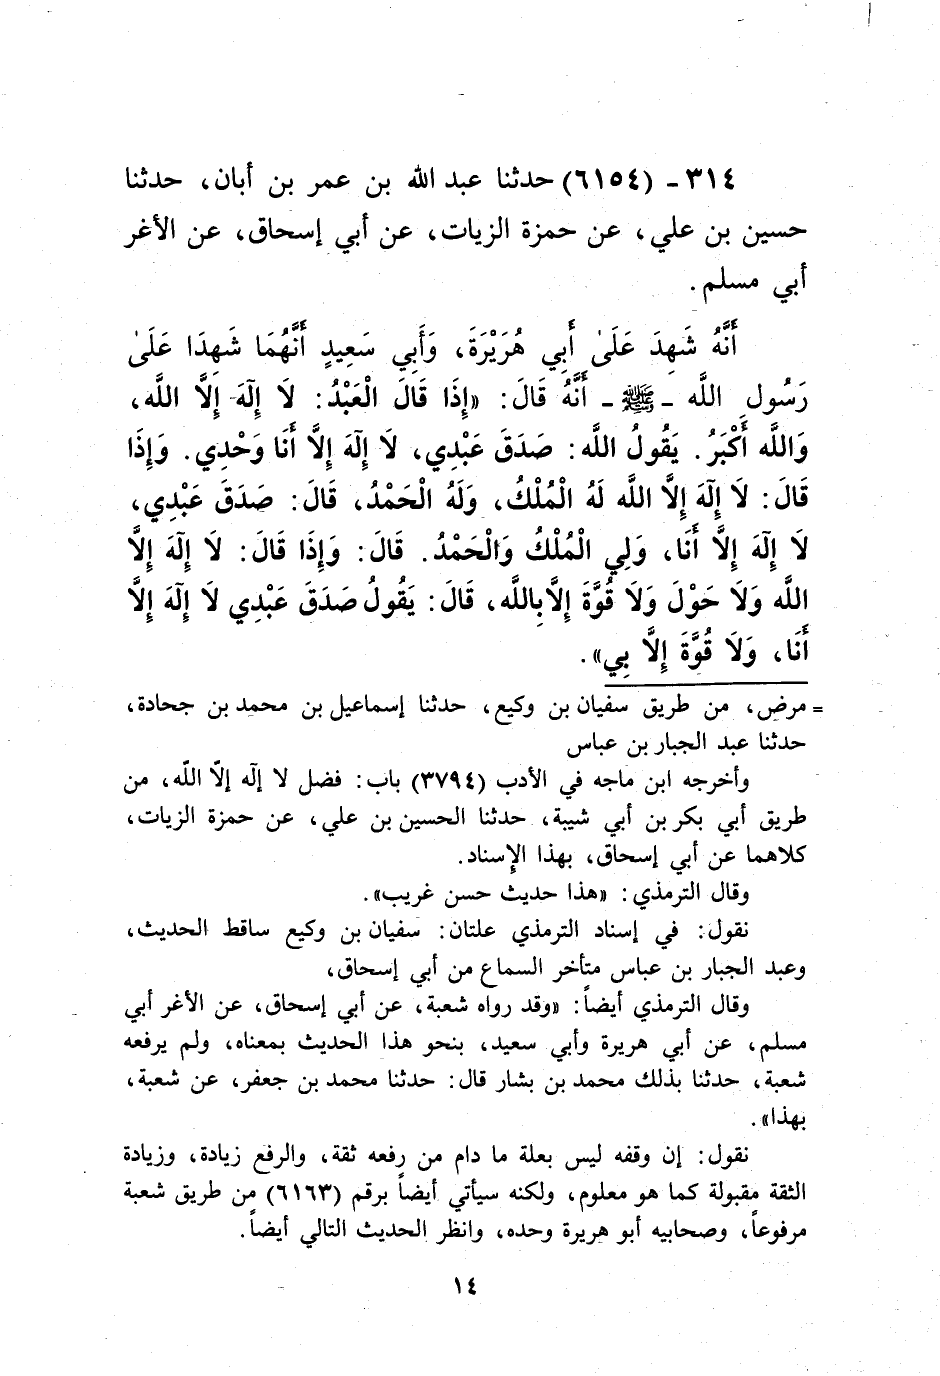 ٣١٤ - (٦١٥٤) حدثنا عبد الله بن عمر بن أبان، حدثنا
حسين بن علي، عن حمزة الزيات، عن أبي إسحاق، عن الأغر
أبي مسلم.
أَنَّهُ شَهِدَ عَلَىٰ أَبِي هُرَيْرَةَ، وَأَبِي سَعِيدٍ أَنَّهُمَا شَهِدَا عَلَىٰ
رَسُولِ اللَّه - ﷺ - أَنَّهُ قَالَ: «إِذَا قَالَ الْعَبْدُ: لَا إِلَٰهَ إِلَّا اللَّه،
وَاللَّه أَكْبَرُ. يَقُولُ اللَّه: صَدَقَ عَبْدِي، لَا إِلَٰهَ إِلَّا أَنَا وَحْدِي. وَإِذَا
قَالَ: لَا إِلَٰهَ إِلَّا اللَّه لَهُ الْمُلْكُ، وَلَهُ الْحَمْدُ، قَالَ: صَدَقَ عَبْدِي،
لَا إِلَٰهَ إِلَّا أَنَا، وَلِي الْمُلْكُ وَالْحَمْدُ. قَالَ: وَإِذَا قَالَ: لَا إِلَٰهَ إِلَّا
اللَّه وَلَا حَوْلَ وَلَا قُوَّةَ إِلَّا بِاللَّه، قَالَ: يَقُولُ صَدَقَ عَبْدِي لَا إِلَٰهَ إِلَّا
أَنَا، وَلَا قُوَّةَ إِلَّا بِي».
= مرض، من طريق سفيان بن وكيع، حدثنا إسماعيل بن محمد بن جحادة،
حدثنا عبد الجبار بن عباس
وأخرجه ابن ماجه في الأدب (٣٧٩٤) باب: فضل لا إلٰه إلاّ اللّه، من
طريق أبي بكر بن أبي شيبة، حدثنا الحسين بن علي، عن حمزة الزيات،
كلاهما عن أبي إسحاق، بهذا الإسناد.
وقال الترمذي: «هذا حديث حسن غريب».
نقول: في إسناد الترمذي علتان: سفيان بن وكيع ساقط الحديث،
وعبد الجبار بن عباس متأخر السماع من أبي إسحاق،
وقال الترمذي أيضاً: «وقد رواه شعبة، عن أبي إسحاق، عن الأغر أبي
مسلم، عن أبي هريرة وأبي سعيد، بنحو هذا الحديث بمعناه، ولم يرفعه
شعبة، حدثنا بذلك محمد بن بشار قال: حدثنا محمد بن جعفر، عن شعبة،
بهذا».
نقول: إن وقفه ليس بعلة ما دام من رفعه ثقة، والرفع زيادة، وزيادة
الثقة مقبولة كما هو معلوم، ولكنه سيأتي أيضاً برقم (٦١٦٣) من طريق شعبة
مرفوعاً، وصحابيه أبو هريرة وحده، وانظر الحديث التالي أيضاً.
١٤